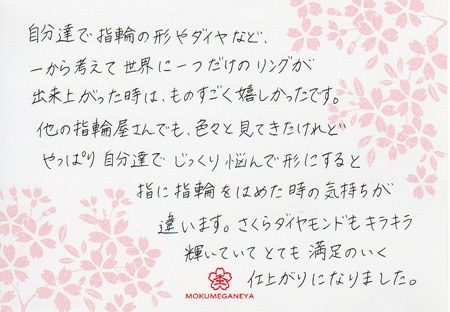 自分達で指輪の形やダイヤなど、
一から考えて世界に一つだけのリングが
出来上がった時は、ものすごく嬉しかったです。
他の指輪屋さんでも、色々と見てきたけれど
やっぱり自分達でじっくり悩んで形にすると
指に指輪をはめた時の気持ちが
違います。さくらダイヤモンドもキラキラ
輝いていてとても満足のいく
仕上がりになりました。
MOKUMEGANEYA